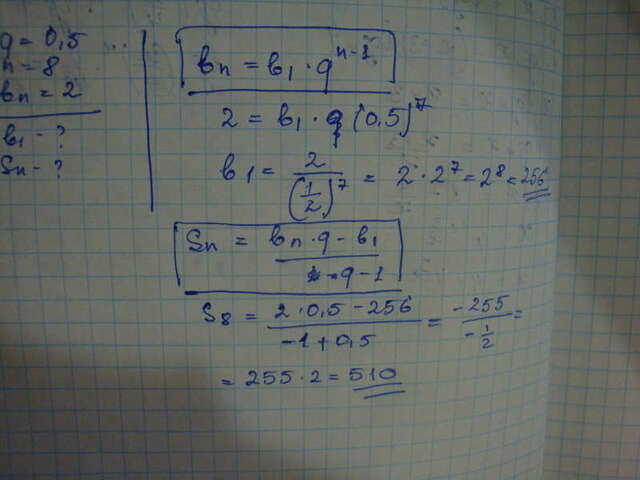 q = 0,5
n = 8
bn = 2
b1 - ?
Sn - ?
bn = b1 · q^n-1
2 = b1 · q (0,5)^7
b1 = 2/(1/2)^7 = 2 · 2^7 = 2^8 = 256
Sn = bn · q - b1 / q - 1
S8 = 2 · 0,5 - 256 / -1 + 0,5 = -255 / -1/2 =
= 255 · 2 = 510